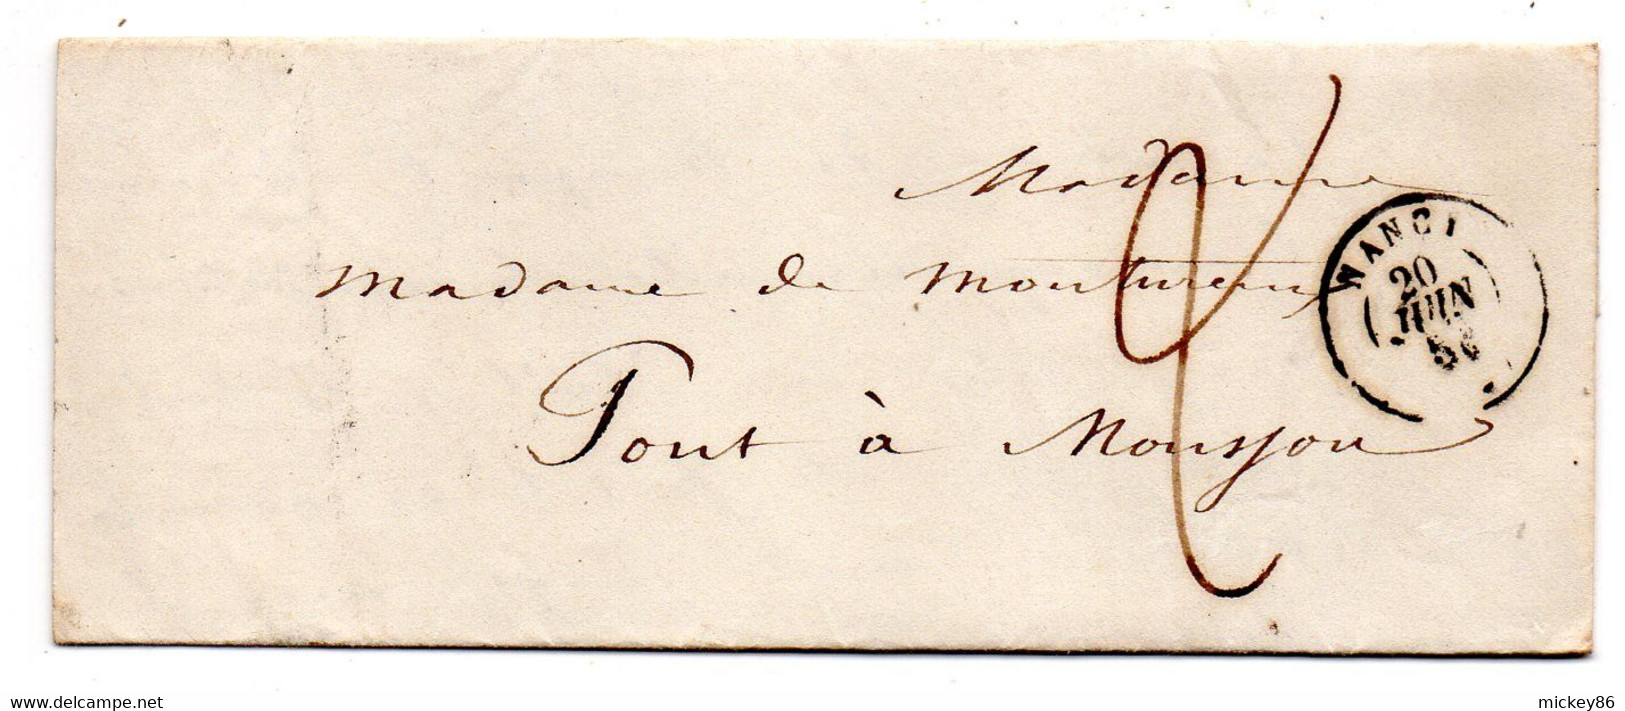 Madame
Madame de Montureux
Pont à Mousson
NANCY
20
JUIN
delcampe.net
mickey86